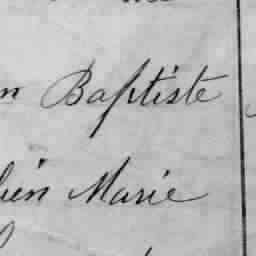 n Baptiste
bien Marie